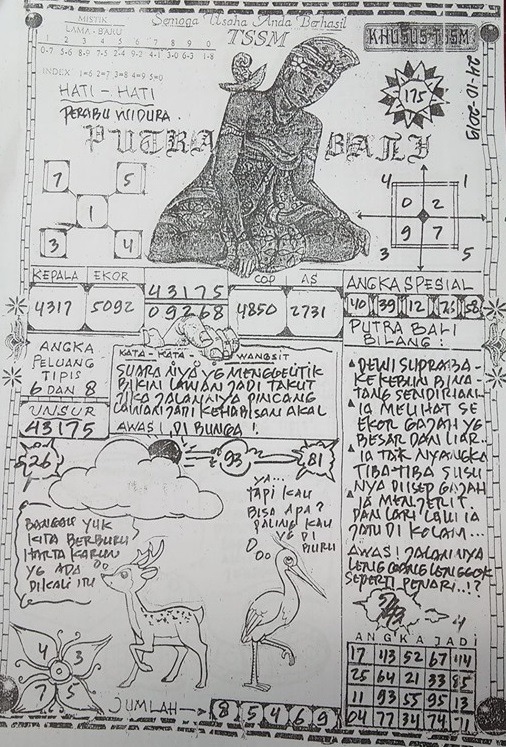 MISTIK
LAMA - BARU
1 2 3 4 5 6 7 8 9 0
0-7 5-6 8-9 7-5 2-4 9-2 4-1 3-0 6-3 1-8
INDEX 1=6 2=7 3=8 4=9 5=0
Semoga Usaha Anda Berhasil
TSSM
KHUSUS TSSM
HATI - HATI
PRABU WIDURA.
175
24-10-2019
PUTRA BALI
7 5
1
3 4
4 1
0 2
9 7
3 5
KEPALA EKOR
4317 5092
43175
09268
COP AS
4850 2731
ANGKA SPESIAL
40 39 12 75 58
ANGKA
PELUANG
TIPIS
6 DAN 8
UNSUR
43175
KATA - KATA WANGSIT
SUARA NYA YG MENGGELITIK
BIKIN LAWAN JADI TAKUT
JIKA JALANNYA PINCANG
LAWAN JADI KEHABISAN AKAL
AWAS! DI BUNGA!
PUTRA BALI
BILANG:
DEWI SUPRABA-
KE KEBUN BINA-
TANG SENDIRIAN
IA MELIHAT SE
EKOR GAJAH YG
BESAR DAN LIAR..
IA TAK NYANGKA
TIBA-TIBA SUSU
NYA DIISEP GAJAH
IA MENJERIT
DAN LARI LALU IA
JATU DI KOLAM...
AWAS! JALANNYA
LENGGANG LENGGOK
SEPERTI PENARI..!?
526
93
81
BANGAU YUK
KITA BERBURU
HARTA KARUN
YG ADA
DIKALI ITU
YA...
TAPI KAU
BISA APA?
PALING KAU
YG DI
BURU
4 3
7 5
JUMLAH
8 5 4 6 9
ANGKA JADI
17 43 52 67 14
25 64 21 33 85
11 93 55 95 13
04 77 34 74 71